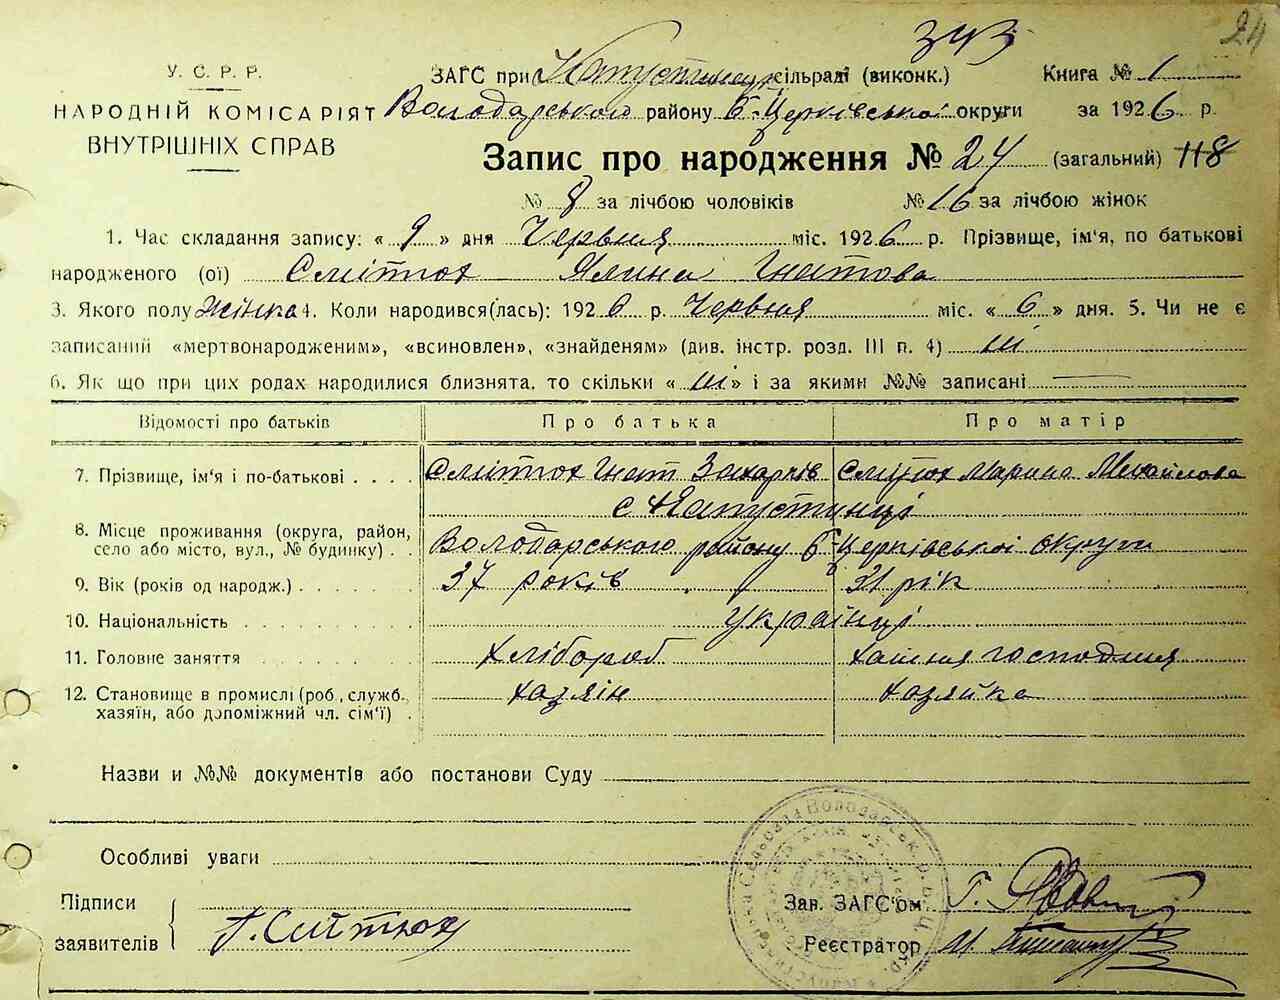 343
24
У. С. Р. Р.
НАРОДНІЙ КОМІСАРІЯТ
ВНУТРІШНІХ СПРАВ
ЗАГС при Капустинец. сільраді (виконк.) Книга № 1
Володарського району Б-Церківської округи за 1926 р.
Запис про народження № 24 (загальний) 118
№ 8 за лічбою чоловіків № 16 за лічбою жінок
1. Час складання запису: « 9 » дня Червня міс. 1926 р. Прізвище, ім'я, по батькові
народженого (ої) Ялина Гнатова
3. Якого полу жінка 4. Коли народився(лась): 1926 р. Червня міс. « 6 » дня. 5. Чи не є
записаний «мертвонародженим», «всиновлен», «знайденям» (див. інстр. розд. III п. 4) ні
6. Як що при цих родах народилися близнята, то скільки « ні » і за якими №№ записані —
Відомості про батьків Про батька Про матір
7. Прізвище, ім'я і по-батькові Гнат Захарків Марина Михайлова
с Капустинці
8. Місце проживання (округа, район,
село або місто, вул., № будинку) Володарського району Б-Церківської округи
9. Вік (років од народж.) 37 років 31 рік
10. Національність Українці
11. Головне заняття хлібороб хатня господиня
12. Становище в промислі (роб., служб.,
хазяїн, або допоміжний чл. сім'ї) хазяїн хазяйка
Назви и №№ документів або постанови Суду
Особливі уваги
Підписи
заявителів Г. Ситтюх
Зав. ЗАГС'ом
Реєстратор